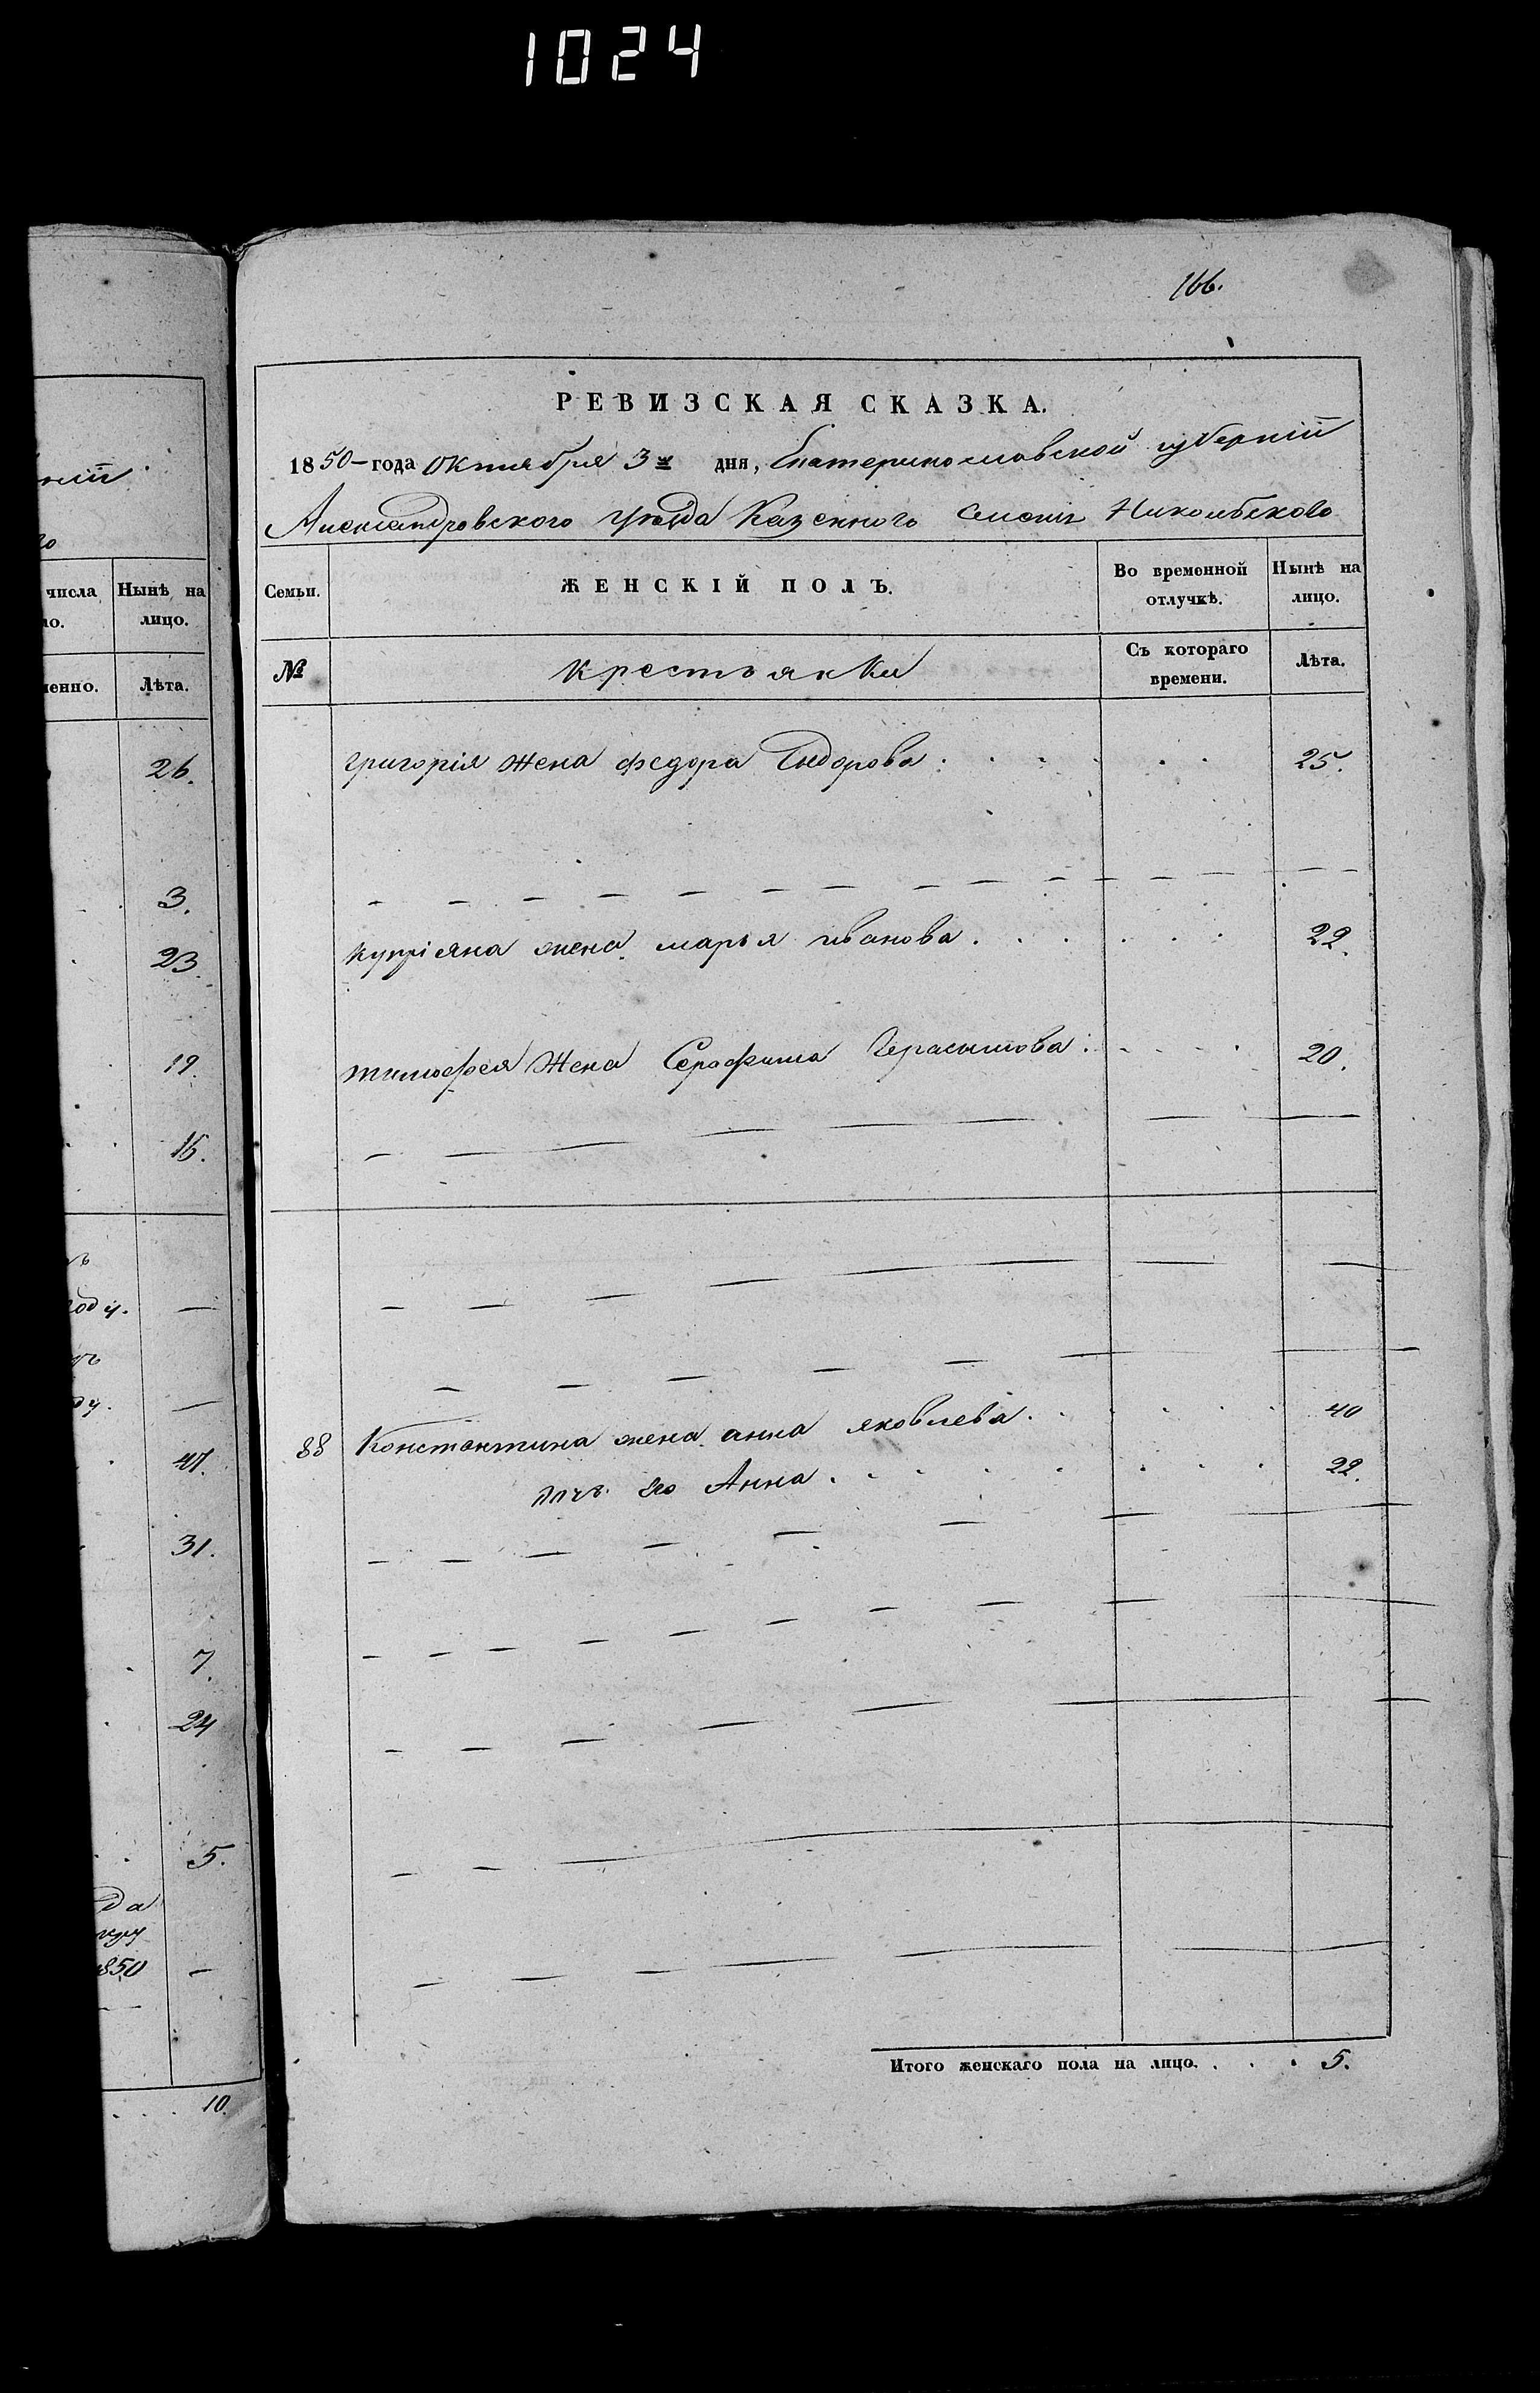 1024
166.
РЕВИЗСКАЯ СКАЗКА.
1850-года Октября 3го дня, Екатеринославской губерніи
Александровского уѣзда Казенного Селенія Никольского
Семьи.
ЖЕНСКІЙ ПОЛЪ.
Во временной отлучкѣ.
Нынѣ на лицо.
№
крестьянки
Съ котораго времени.
Лѣта.
григорія жена федора Сидорова 25.
купріяна жена марья иванова 22.
тимофея жена Серафима Герасымова 20.
88 Константина жена анна яковлева 40
дочь его Анна 22.
Итого женскаго пола на лицо 5.
числа
Нынѣ на лицо.
Лѣта.
26.
3.
23.
19.
15.
году.
47.
31.
7.
24
5.
850
10.